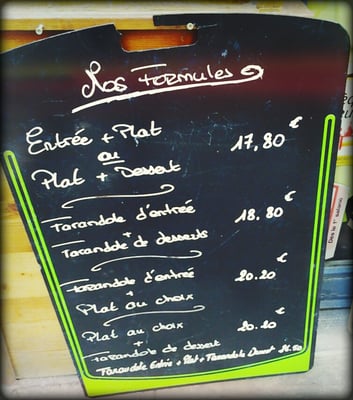 Nos Formules
Entrée + Plat 17,80 €
ou
Plat + Dessert
Farandole d'entrée 18.80 €
+
Farandole de desserts
Farandole d'entrée 20.20 €
+
Plat au choix
Plat au choix 20.20 €
+
Farandole de dessert
Farandole Entrée + Plat + Farandole Dessert